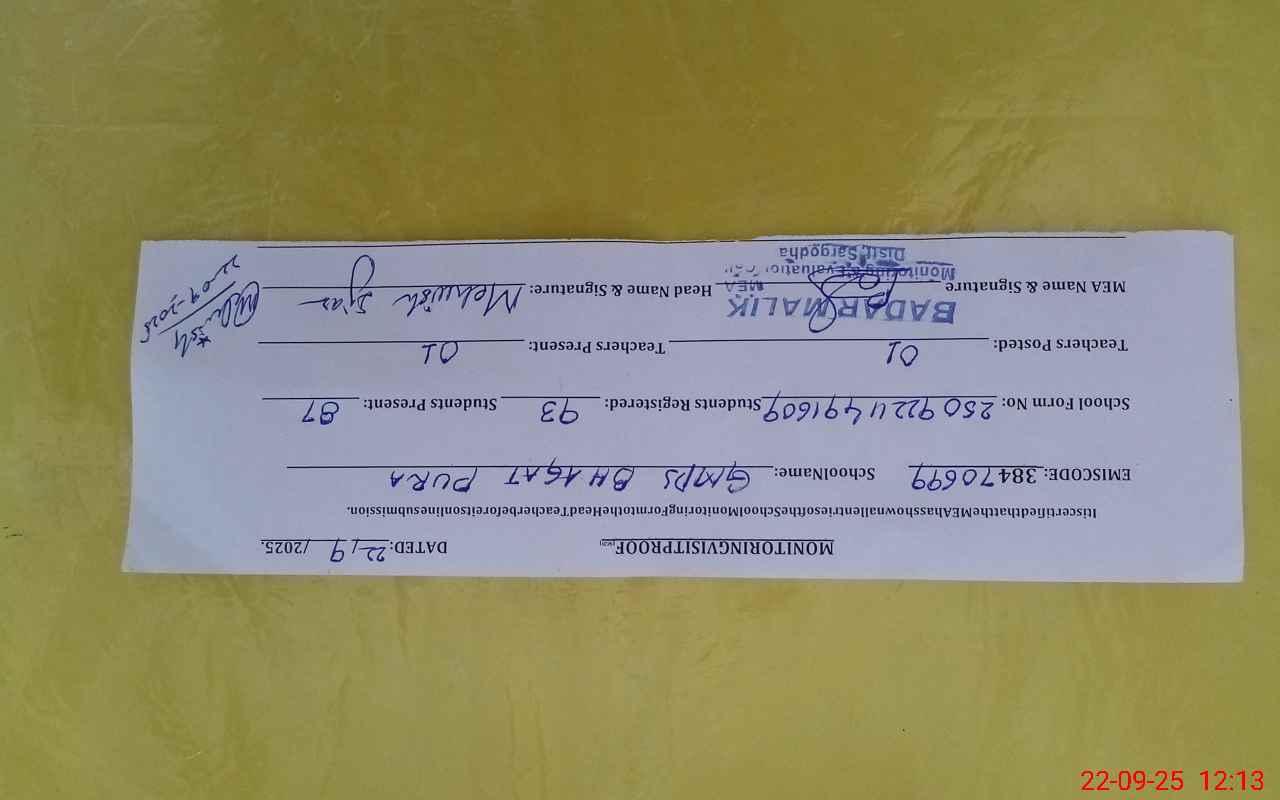 MONITORINGVISITPROOF DATED: 22/9/2025.
ItiscertifiedthattheMEAhasshownallentriesoftheSchoolMonitoringFormtotheHeadTeacherbeforeitsonlinesubmission.
EMISCODE: 38470699 SchoolName: GMPS BHAGAT PURA
School Form No: 2509224491609 Students Registered: 93 Students Present: 87
Teachers Posted: 01 Teachers Present: 01
BADAR MALIK
MEA Name & Signature MEA Head Name & Signature: Mehwish Ijaz
Monitoring & Evaluation
Distt. Sargodha
22-09-2025
22-09-25 12:13